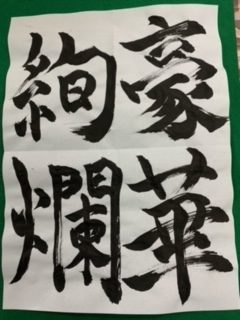 豪華
絢爛